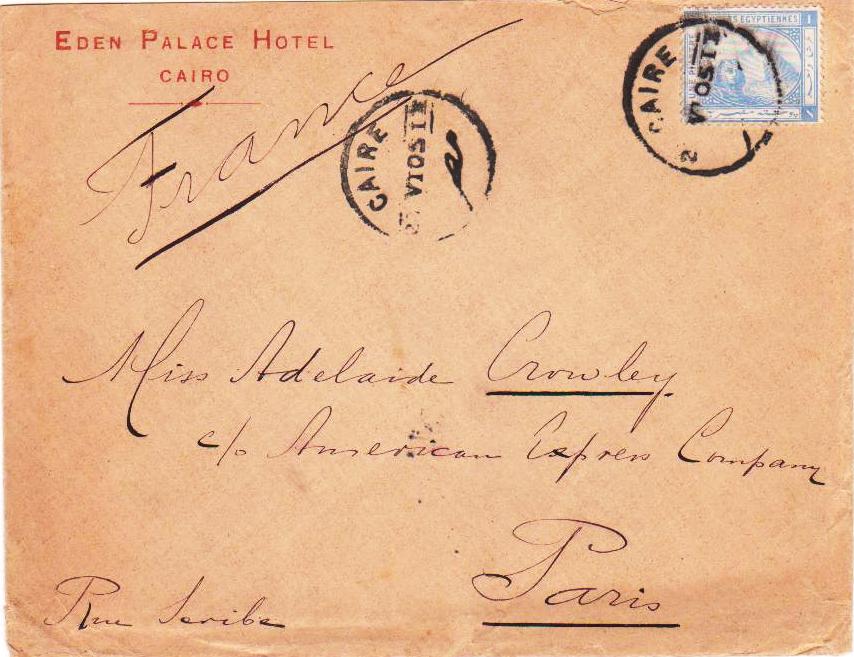 EDEN PALACE HOTEL
CAIRO
France
CAIRE
CAIRE
ES EGYPTIENNES
1
Miss Adelaide Crowley
c/o American Express Company
Paris
Rue Scribe